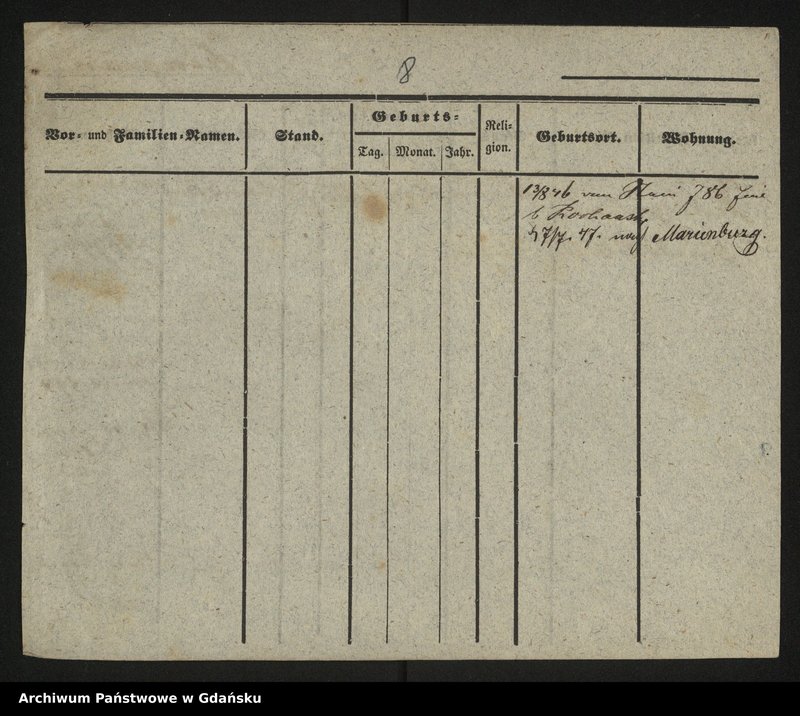 8
Vor- und Familien-Namen. Stand. Geburts- Tag. Monat. Jahr. Reli-gion. Geburtsort. Wohnung.
13/8 46 von
b
7/7. 47. nach Marienburg.
Archiwum Państwowe w Gdańsku